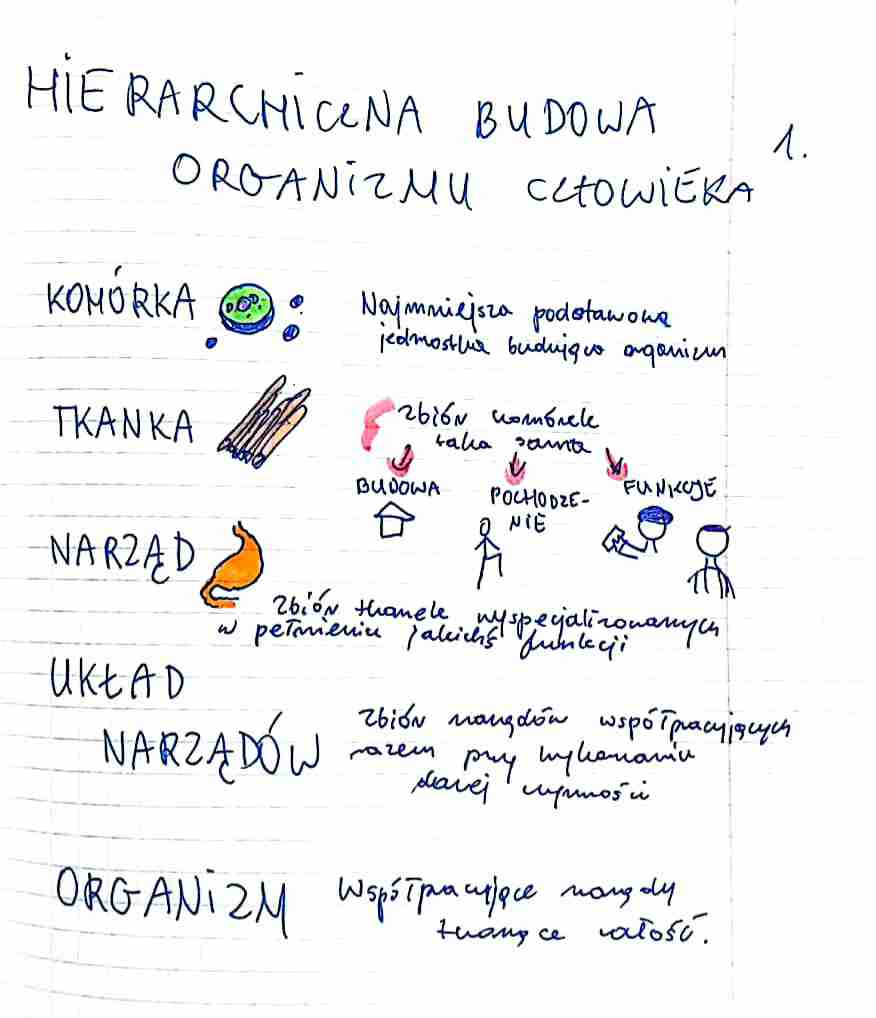 HIERARCHICZNA BUDOWA
ORGANIZMU CZŁOWIEKA
1.
KOMÓRKA
Najmniejsza podstawowa
jednostka budująca organizm
TKANKA
zbiór komórek
taka sama
BUDOWA
POCHODZE-
NIE
FUNKCJE
NARZĄD
zbiór tkanek wyspecjalizowanych
w pełnieniu jakichś funkcji
UKŁAD
NARZĄDÓW
zbiór narządów współpracujących
razem przy wykonaniu
danej czynności
ORGANIZM
Współpracujące narządy
tworzące całość.